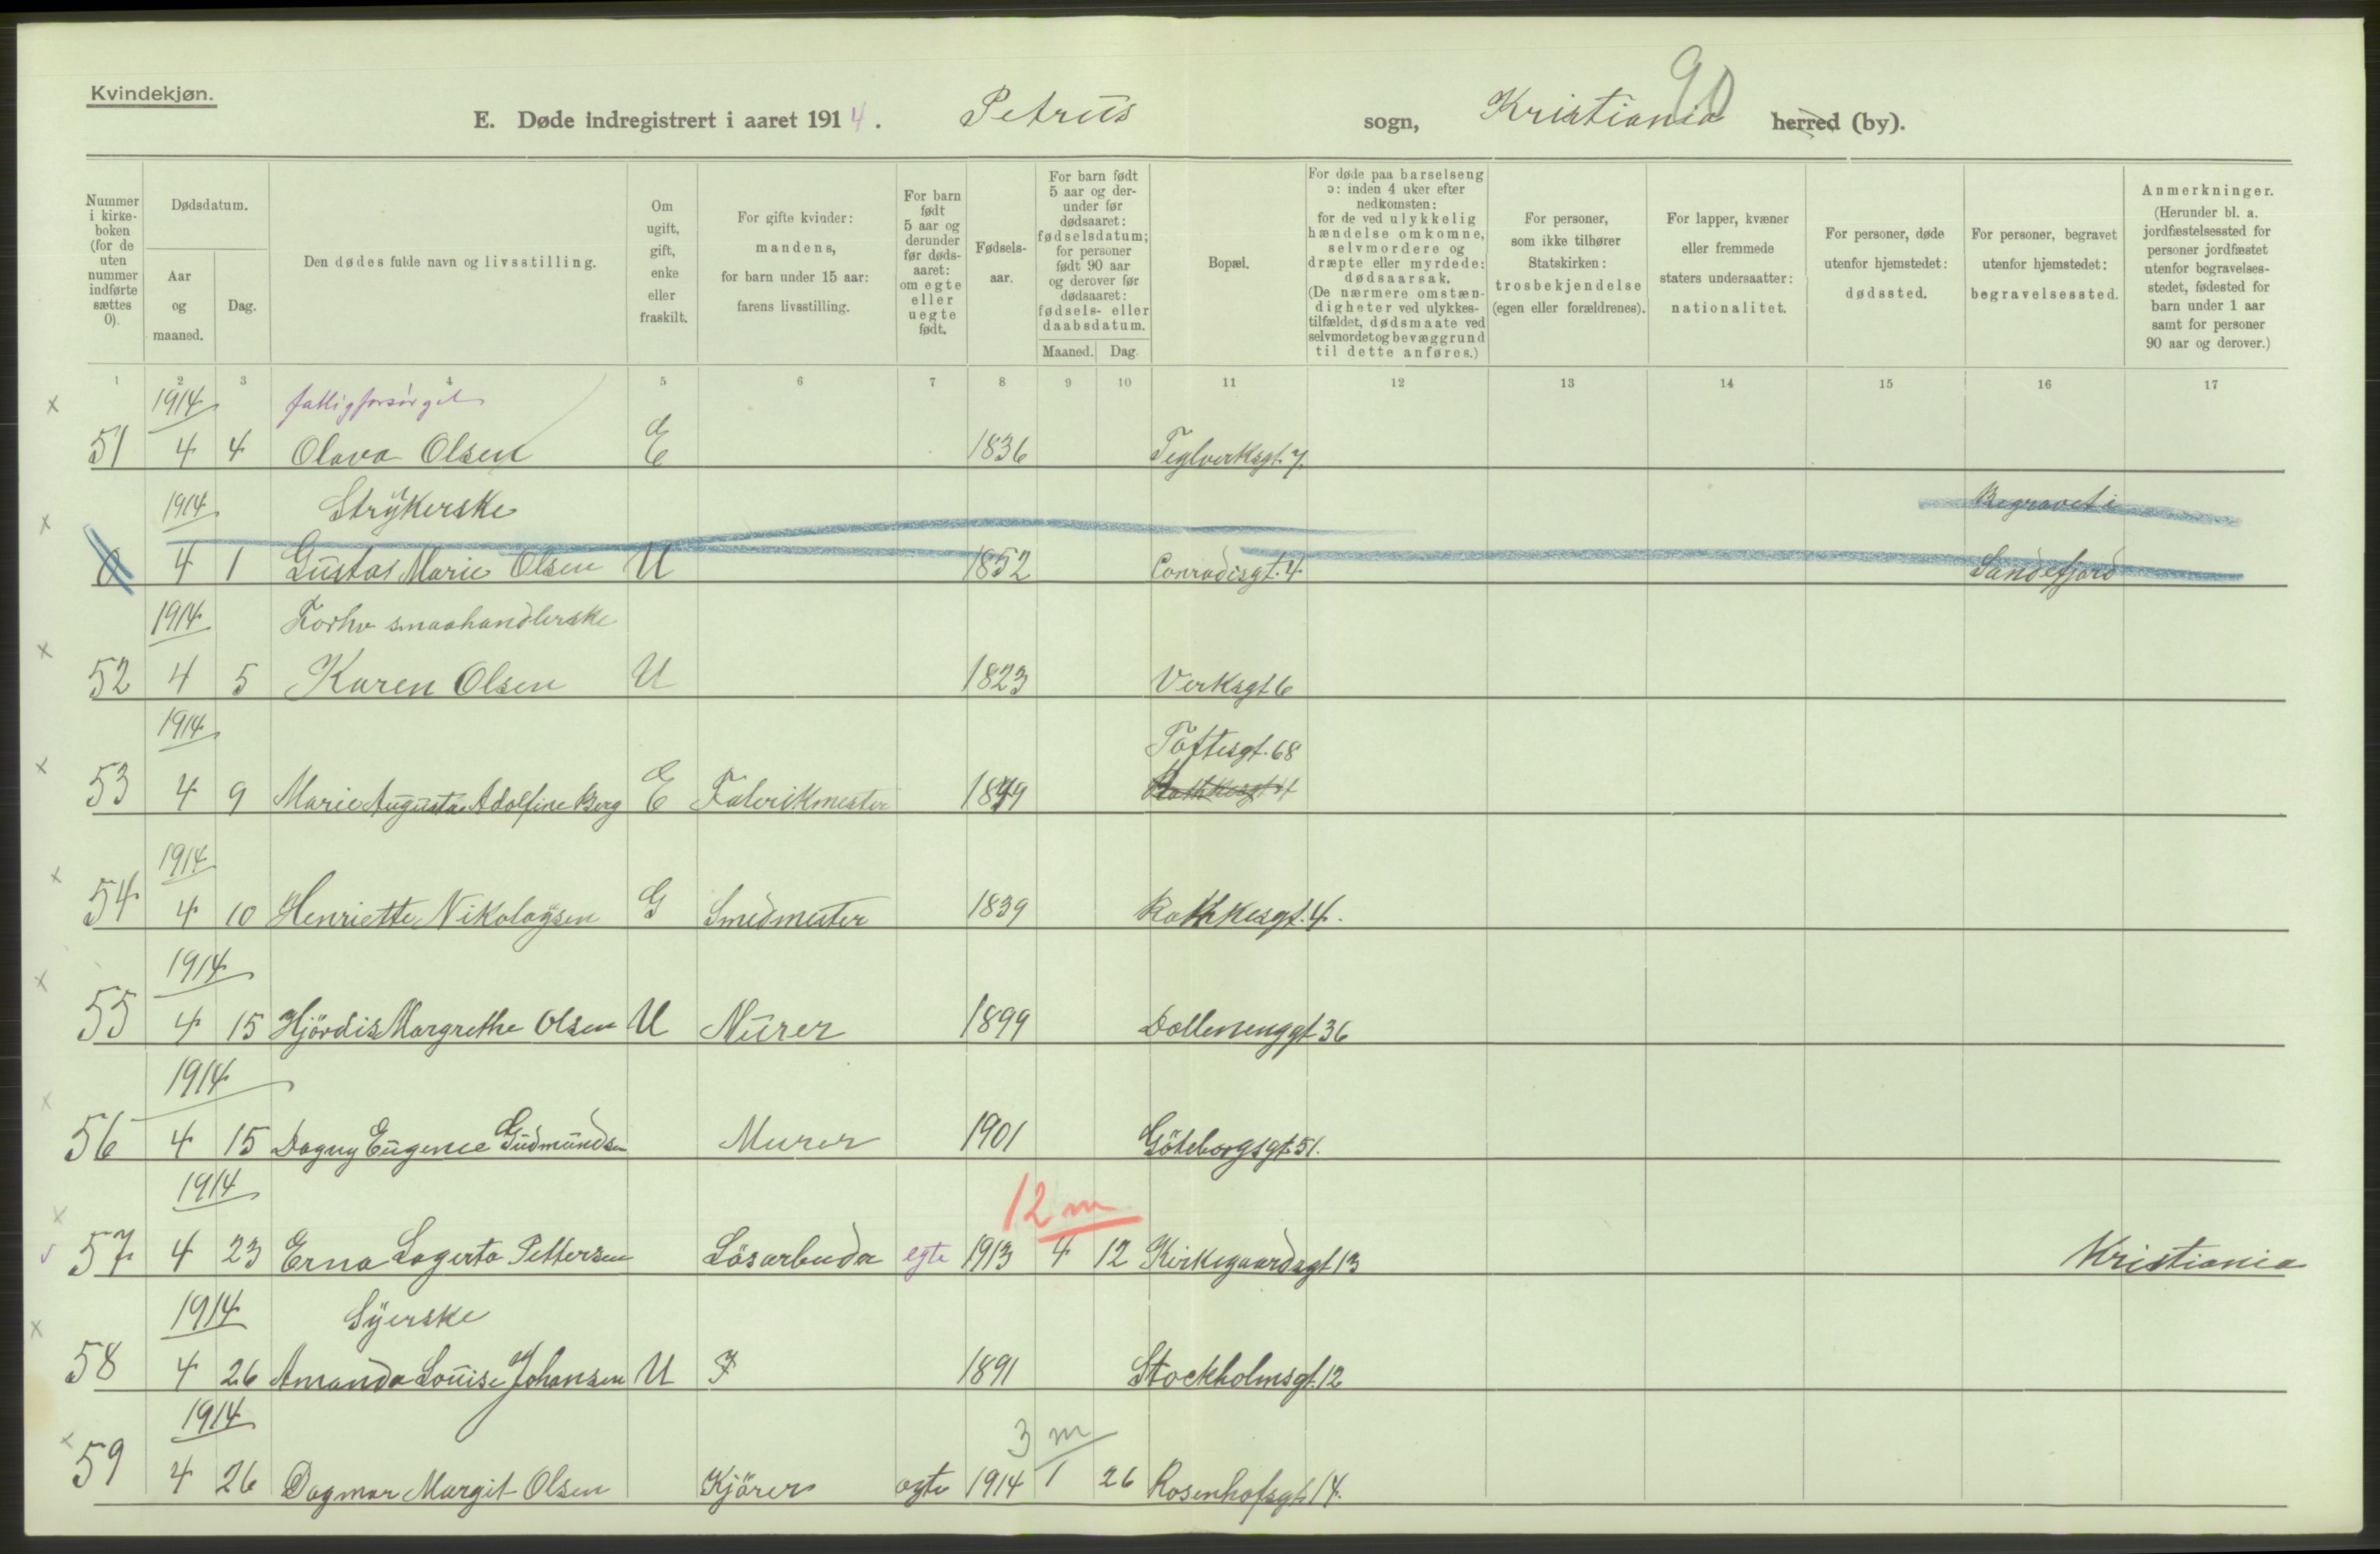 90
Kvindekjøn.
E. Døde indregistrert i aaret 1914. Petrus sogn, Kristiania herred (by).
Nummer i kirkeboken (for de uten nummer indførte sættes 0).
Dødsdatum.
Aar og maaned.
Dag.
Den dødes fulde navn og livsstilling.
Om ugift, gift, enke eller fraskilt.
For gifte kvinder: mandens, for barn under 15 aar: farens livsstilling.
For barn født 5 aar og derunder før dødsaaret: om egte eller uegte født.
Fødselsaar.
For barn født 5 aar og derunder før dødsaaret: fødselsdatum; for personer født 90 aar og derover før dødsaaret: fødsels- eller daabsdatum.
Maaned. Dag.
Bopæl.
For døde paa barselseng ɔ: inden 4 uker efter nedkomsten: for de ved ulykkelig hændelse omkomne, selvmordere og dræpte eller myrdede: dødsaarsak. (De nærmere omstændigheter ved ulykkestilfældet, dødsmaate ved selvmordet og bevæggrund til dette anføres.)
For personer, som ikke tilhører Statskirken: trosbekjendelse (egen eller forældrenes).
For lapper, kvæner eller fremmede staters undersaatter: nationalitet.
For personer, døde utenfor hjemstedet: dødssted.
For personer, begravet utenfor hjemstedet: begravelsessted.
Anmerkninger. (Herunder bl. a. jordfæstelsessted for personer jordfæstet utenfor begravelsesstedet, fødested for barn under 1 aar samt for personer 90 aar og derover.)
1 2 3 4 5 6 7 8 9 10 11 12 13 14 15 16 17
x 1914 fattigforsørget
51 4 4 Olava Olsen E 1836 Teglverksgt. 7
x 1914 Strykerske Begravet i
0 4 1 Gustas Marie Olsen U 1852 Conradisgt. 4 Sandefjord
1914 Forhv smaahandlerske
x 52 4 5 Karen Olsen U 1823 Verksgt 6
1914 Toftesgt. 68
x 53 4 9 Marie Augusta Adolfine Berg E Fabrikmester 1849
1914
x 54 4 10 Henriette Nikolaysen G Smedmester 1839 Rathkesgt. 4.
1914
x 55 4 15 Hjördis Margrethe Olsen U Murer 1899 Dællenenggt 36
1914
x 56 4 15 Dagny Eugenie Gudmundsen Murer 1901 Göteborgsgt 51.
1914 12 m
x 57 4 23 Erna Lagerta Pettersen Lösarbeider egte 1913 4 12 Kirkegaardsgt 13 Kristiania
1914 Syerske
x 58 4 26 Amanda Louise Johansen U F 1891 Stockholmsgt. 12
1914 3 m
x 59 4 26 Dagmar Margit Olsen Kjörer egte 1914 1 26 Rosenhofsgt 14.